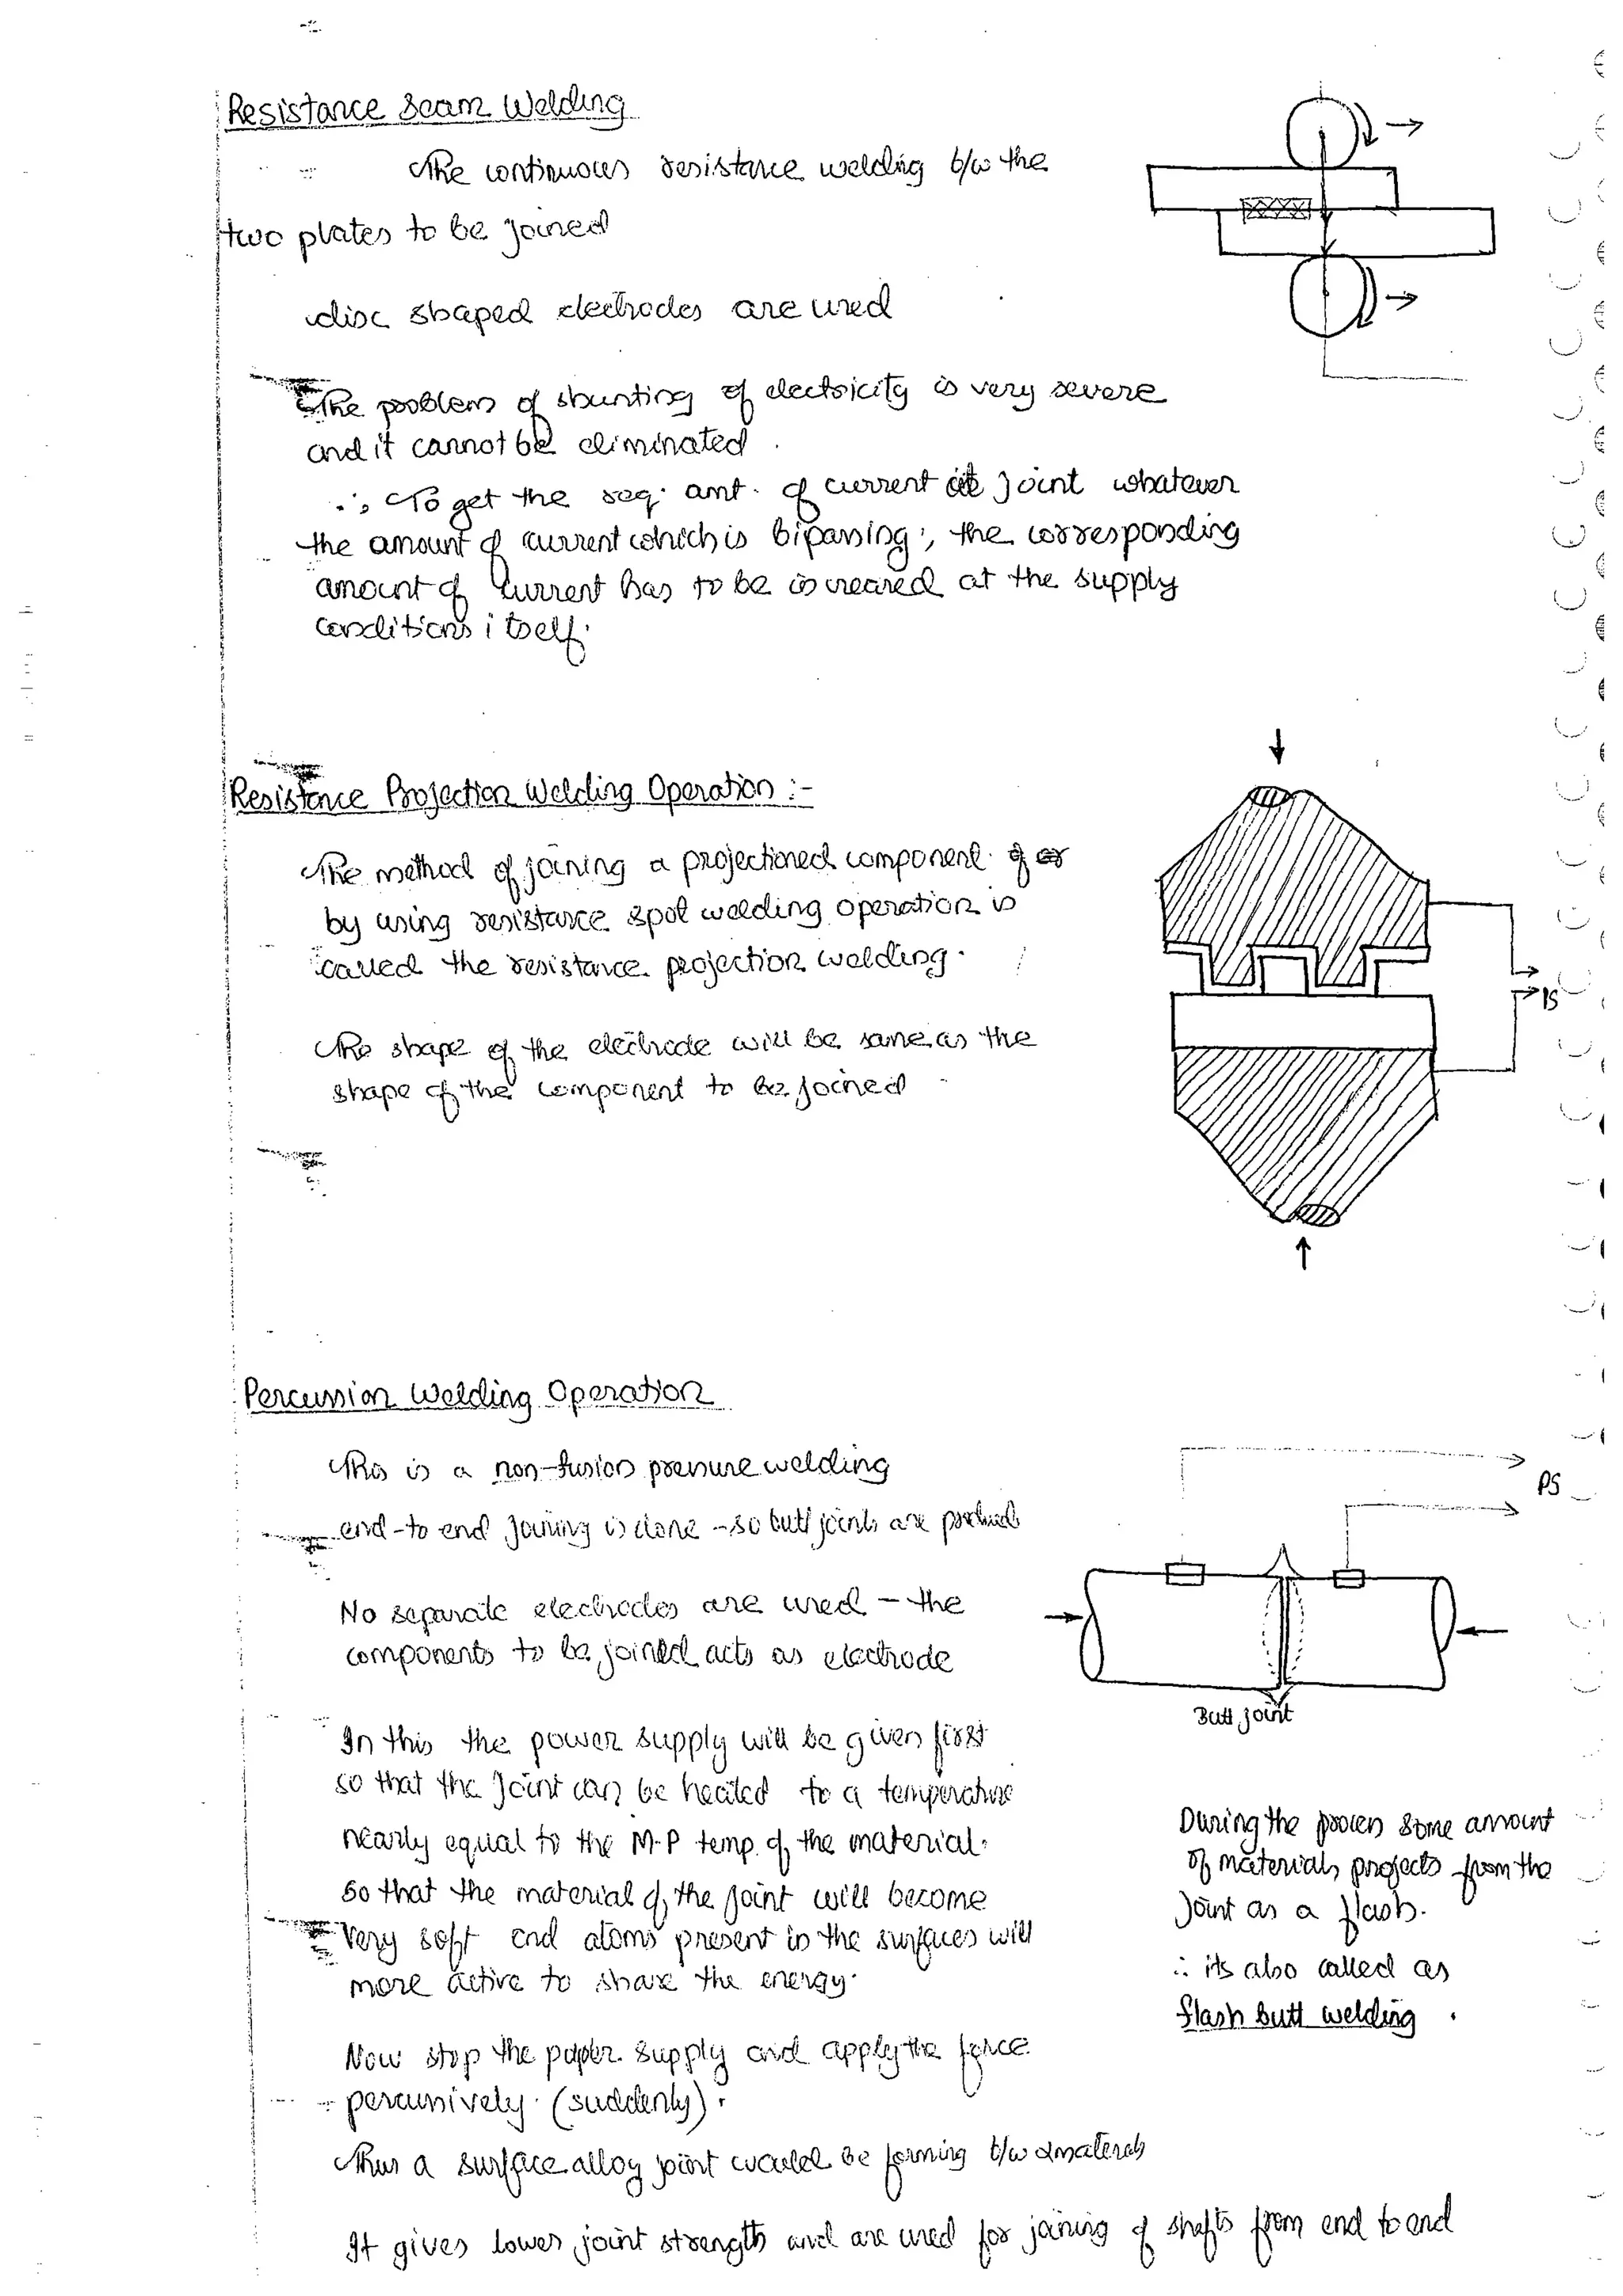 Resistance Seam Welding
The continuous resistance welding b/w the
two plates to be joined
disc shaped electrodes are used
The problem of shunting of electricity is very severe
and it cannot be eliminated.
∴ To get the req. amt. of current at joint whatever
the amount of current which is bipassing, the corresponding
amount of current has to be increased at the supply
conditions itself.
Resistance Projection Welding Operation :-
The method of joining a projectioned component of or
by using resistance spot welding operation is
called the resistance projection welding.
The shape of the electrode will be same as the
shape of the component to be joined
PS
Percussion Welding Operation
This is a non-fusion pressure welding
end-to end joining is done - so butt joints are produced
No separate electrodes are used - the
components to be joined acts as electrode
PS
Butt joint
In this the power supply will be given first
so that the joint can be heated to a temperature
nearly equal to the M.P temp. of the material.
So that the material of the joint will become
very soft and atoms present in the surfaces will
more active to share the energy.
Now stop the power supply and apply the force
percussively. (suddenly).
Thus a surface alloy joint would be forming b/w 2 materials
It gives lower joint strength and are used for joining of shafts from end to end
During the process some amount
of materials projects from the
joint as a flash.
∴ its also called as
flash butt welding.